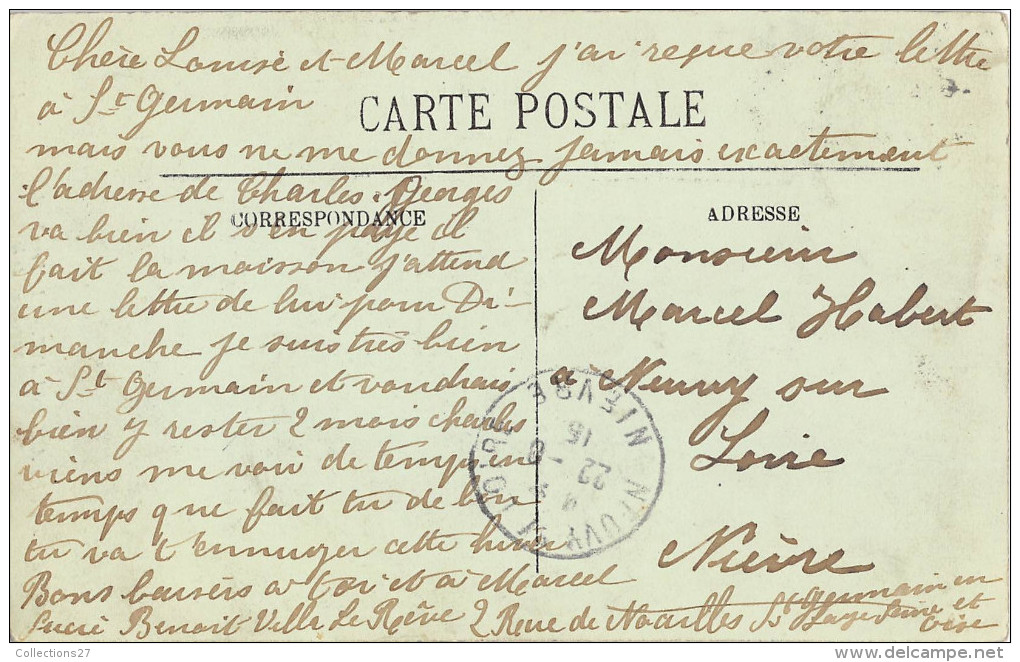 Chère Louise et Marcel j'ai reçue votre lettre
à St Germain
CARTE POSTALE
mais vous ne me donnez jamais exactement
l'adresse de Charles. Georges
CORRESPONDANCE
va bien il s'en paye il
fait la maison j'attend
une lettre de lui pour Di-
manche je suis très bien
à St Germain et voudrais
bien y rester 2 mois charles
viens me voir de temps en
temps que fait tu de bon
tu va t'ennuyer cette hiver
Bons baisers a toi et à Marcel
Benoit Villa Le Rêve 2 Rue de Noailles St germain en
Laye Seine et
Oise
ADRESSE
Monsieur
Marcel Habert
a Neuvy sur
Loire
Nièvre
NEUVY S LOIRE NIÈVRE
22 - 15
Collections27
www.delcampe.net